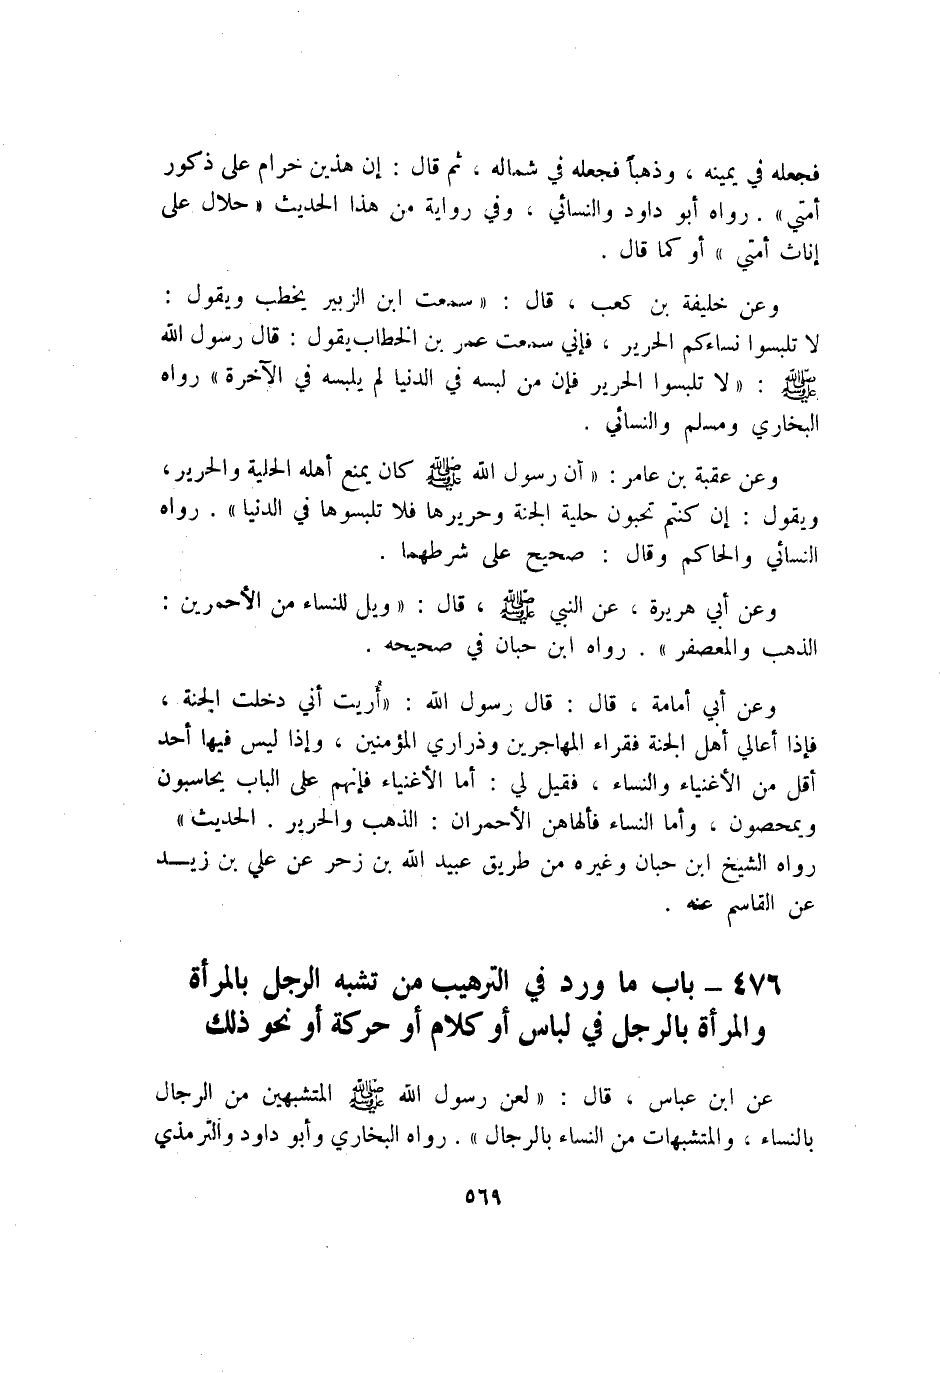 فجعله في يمينه ، وذهباً فجعله في شماله ، ثم قال : إن هذين حرام على ذكور
أمتي» . رواه أبو داود والنسائي ، وفي رواية من هذا الحديث « حلال على
إناث أمتي » أو كما قال .
وعن خليفة بن كعب ، قال : « سمعت ابن الزبير يخطب ويقول :
لا تلبسوا نساءكم الحرير ، فإني سمعت عمر بن الخطاب يقول : قال رسول الله
ﷺ : « لا تلبسوا الحرير فإن من لبسه في الدنيا لم يلبسه في الآخرة » رواه
البخاري ومسلم والنسائي .
وعن عقبة بن عامر : « أن رسول الله ﷺ كان يمنع أهله الحلية والحرير ،
ويقول : إن كنتم تحبون حلية الجنة وحريرها فلا تلبسوها في الدنيا » . رواه
النسائي والحاكم وقال : صحيح على شرطهما .
وعن أبي هريرة ، عن النبي ﷺ ، قال : « ويل للنساء من الأحمرين :
الذهب والمعصفر » . رواه ابن حبان في صحيحه .
وعن أبي أمامة ، قال : قال رسول الله : «أُريت أني دخلت الجنة ،
فإذا أعالي أهل الجنة فقراء المهاجرين وذراري المؤمنين ، وإذا ليس فيها أحد
أقل من الأغنياء والنساء ، فقيل لي : أما الأغنياء فإنهم على الباب يحاسبون
ويمحصون ، وأما النساء فألهاهن الأحمران : الذهب والحرير . الحديث »
رواه الشيخ ابن حبان وغيره من طريق عبيد الله بن زحر عن علي بن زيــد
عن القاسم عنه .
٤٧٦ – باب ما ورد في الترهيب من تشبه الرجل بالمرأة
والمرأة بالرجل في لباس أو كلام أو حركة أو نحو ذلك
عن ابن عباس ، قال : « لعن رسول الله ﷺ المتشبهين من الرجال
بالنساء ، والمتشبهات من النساء بالرجال » . رواه البخاري وأبو داود والترمذي
٥٦٩